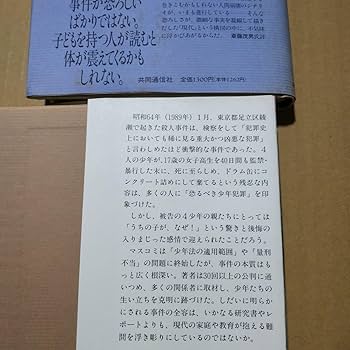 事件が恐ろしい
ばかりではない。
子どもを持つ人が読むと
体が震えてくるかも
しれない。
共同通信社
定価1300円(本体1262円)
巻きともかもしれない人間崩壊のシナリ
オが、いまも進行している
そんな
恐ろしさが、微細な事実を凝縮して描き
だした「現代」という構図の中に、不気味
に浮かびあがるからだ。 斎藤茂男氏評
昭和64年(1989年)1月、東京都足立区綾
瀬で起きた殺人事件は、検察をして「犯罪史
上においても稀に見る重大かつ凶悪な犯罪」
と言わしめたほど衝撃的な事件であった。4
人の少年が、17歳の女子高生を40日間も監禁・
暴行した末に、死に至らしめ、ドラム缶にコ
ンクリート詰めにして棄てるという残忍な内
容は、多くの人に「恐るべき少年犯罪」を印
象づけた。
しかし、被告の4少年の親たちにとっては
「うちの子が、なぜ!」という驚きと後悔の
入りまじった感情で迎えられたことだろう。
マスコミは「少年法の適用範囲」や「量刑
不当」の問題に終始したが、事件の本質はも
っと広く根深い。著者は30回以上の公判に通
いつめ、多くの関係者に取材し、少年たちの
生い立ちを克明に跡づけた。しだいに明らかに
される事件の全容は、いかなる研究書やレ
ポートよりも、現代の家庭や教育が抱える難
問を浮き彫りにしているのではないか。